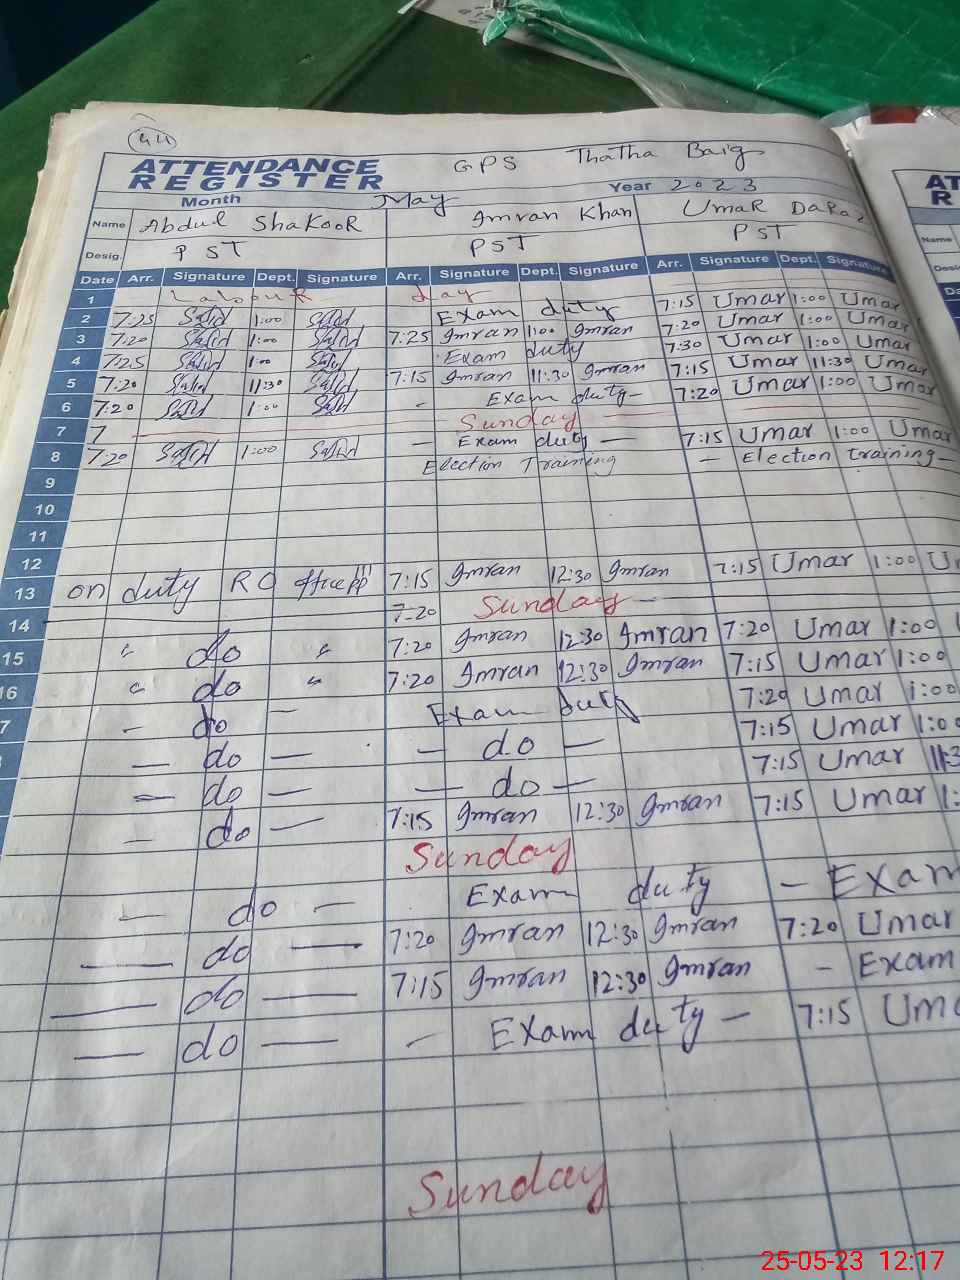 44
ATTENDANCE REGISTER GPS Thatha Baig
Month May Year 2023
Name Abdul Shakoor Imran Khan Umar Daraz
Desig. PST PST PST
Date Arr. Signature Dept. Signature Arr. Signature Dept. Signature Arr. Signature Dept. Signature
1 Labour day
2 7:25 1:00 Exam duty 7:15 Umar 1:00 Umar
3 7:20 1:00 7:25 Imran 1:00 Imran 7:20 Umar 1:00 Umar
4 7:25 1:00 Exam duty 7:30 Umar 1:00 Umar
5 7:20 11:30 7:15 Imran 11:30 Imran 7:15 Umar 11:30 Umar
6 7:20 1:00 - Exam duty - 7:20 Umar 1:00 Umar
7 7 Sunday
8 7:20 1:00 - Exam duty - 7:15 Umar 1:00 Umar
9 Election Training - Election training -
10
11
12
13 on duty RO office 7:15 Imran 12:30 Imran 7:15 Umar 1:00
14 7:20 Sunday -
15 " do " 7:20 Imran 12:30 Imran 7:20 Umar 1:00
16 " do " 7:20 Imran 12:30 Imran 7:15 Umar 1:00
7 - do - Exam duty 7:20 Umar 1:00
- do - - do - 7:15 Umar 1:00
- do - - do - 7:15 Umar
- do - 7:15 Imran 12:30 Imran 7:15 Umar
Sunday
- do - Exam duty - Exam
- do - 7:20 Imran 12:30 Imran 7:20 Umar
- do - 7:15 Imran 12:30 Imran - Exam
- do - - Exam duty - 7:15
Sunday
25-05-23 12:17